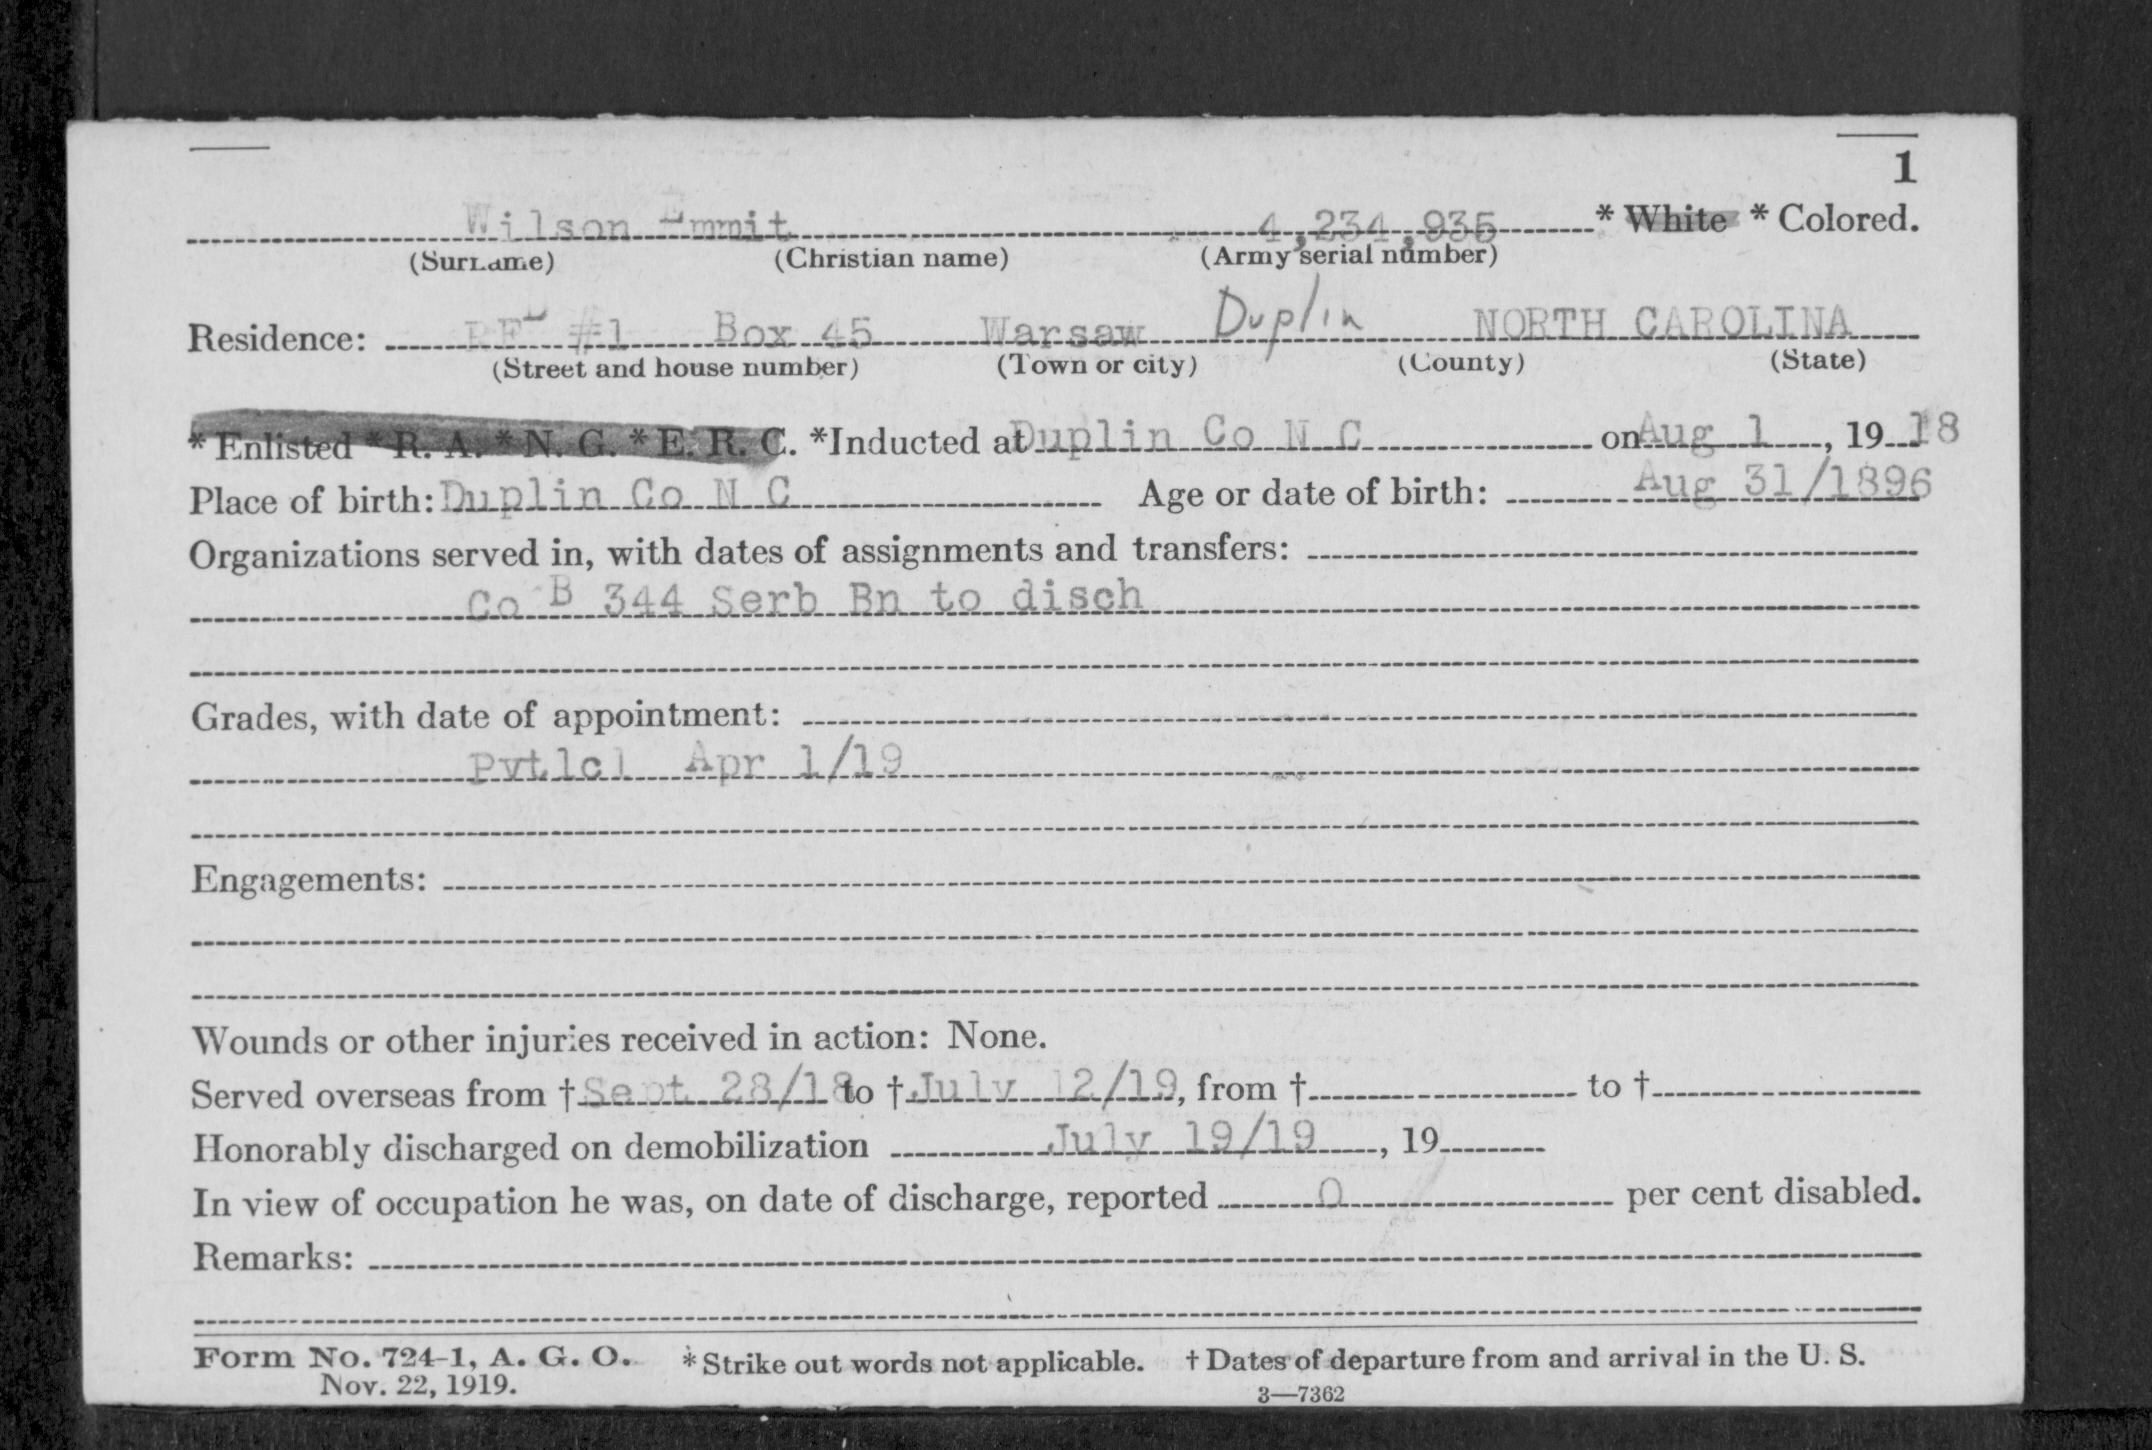 1
Wilson Emmit 4,234,935 * White * Colored.
(Surname) (Christian name) (Army serial number)
Residence: RFD #1 Box 45 Warsaw Duplin NORTH CAROLINA
(Street and house number) (Town or city) (County) (State)
* Enlisted * R. A. * N. G. * E. R. C. *Inducted at Duplin Co N C on Aug 1, 19 18
Place of birth: Duplin Co N C Age or date of birth: Aug 31/1896
Organizations served in, with dates of assignments and transfers:
Co B 344 Serb Bn to disch
Grades, with date of appointment:
Pvt1cl Apr 1/19
Engagements:
Wounds or other injuries received in action: None.
Served overseas from † Sept 28/18 to † July 12/19, from † to †
Honorably discharged on demobilization July 19/19, 19
In view of occupation he was, on date of discharge, reported 0 per cent disabled.
Remarks:
Form No. 724-1, A. G. O. * Strike out words not applicable. † Dates of departure from and arrival in the U. S.
Nov. 22, 1919. 3—7362